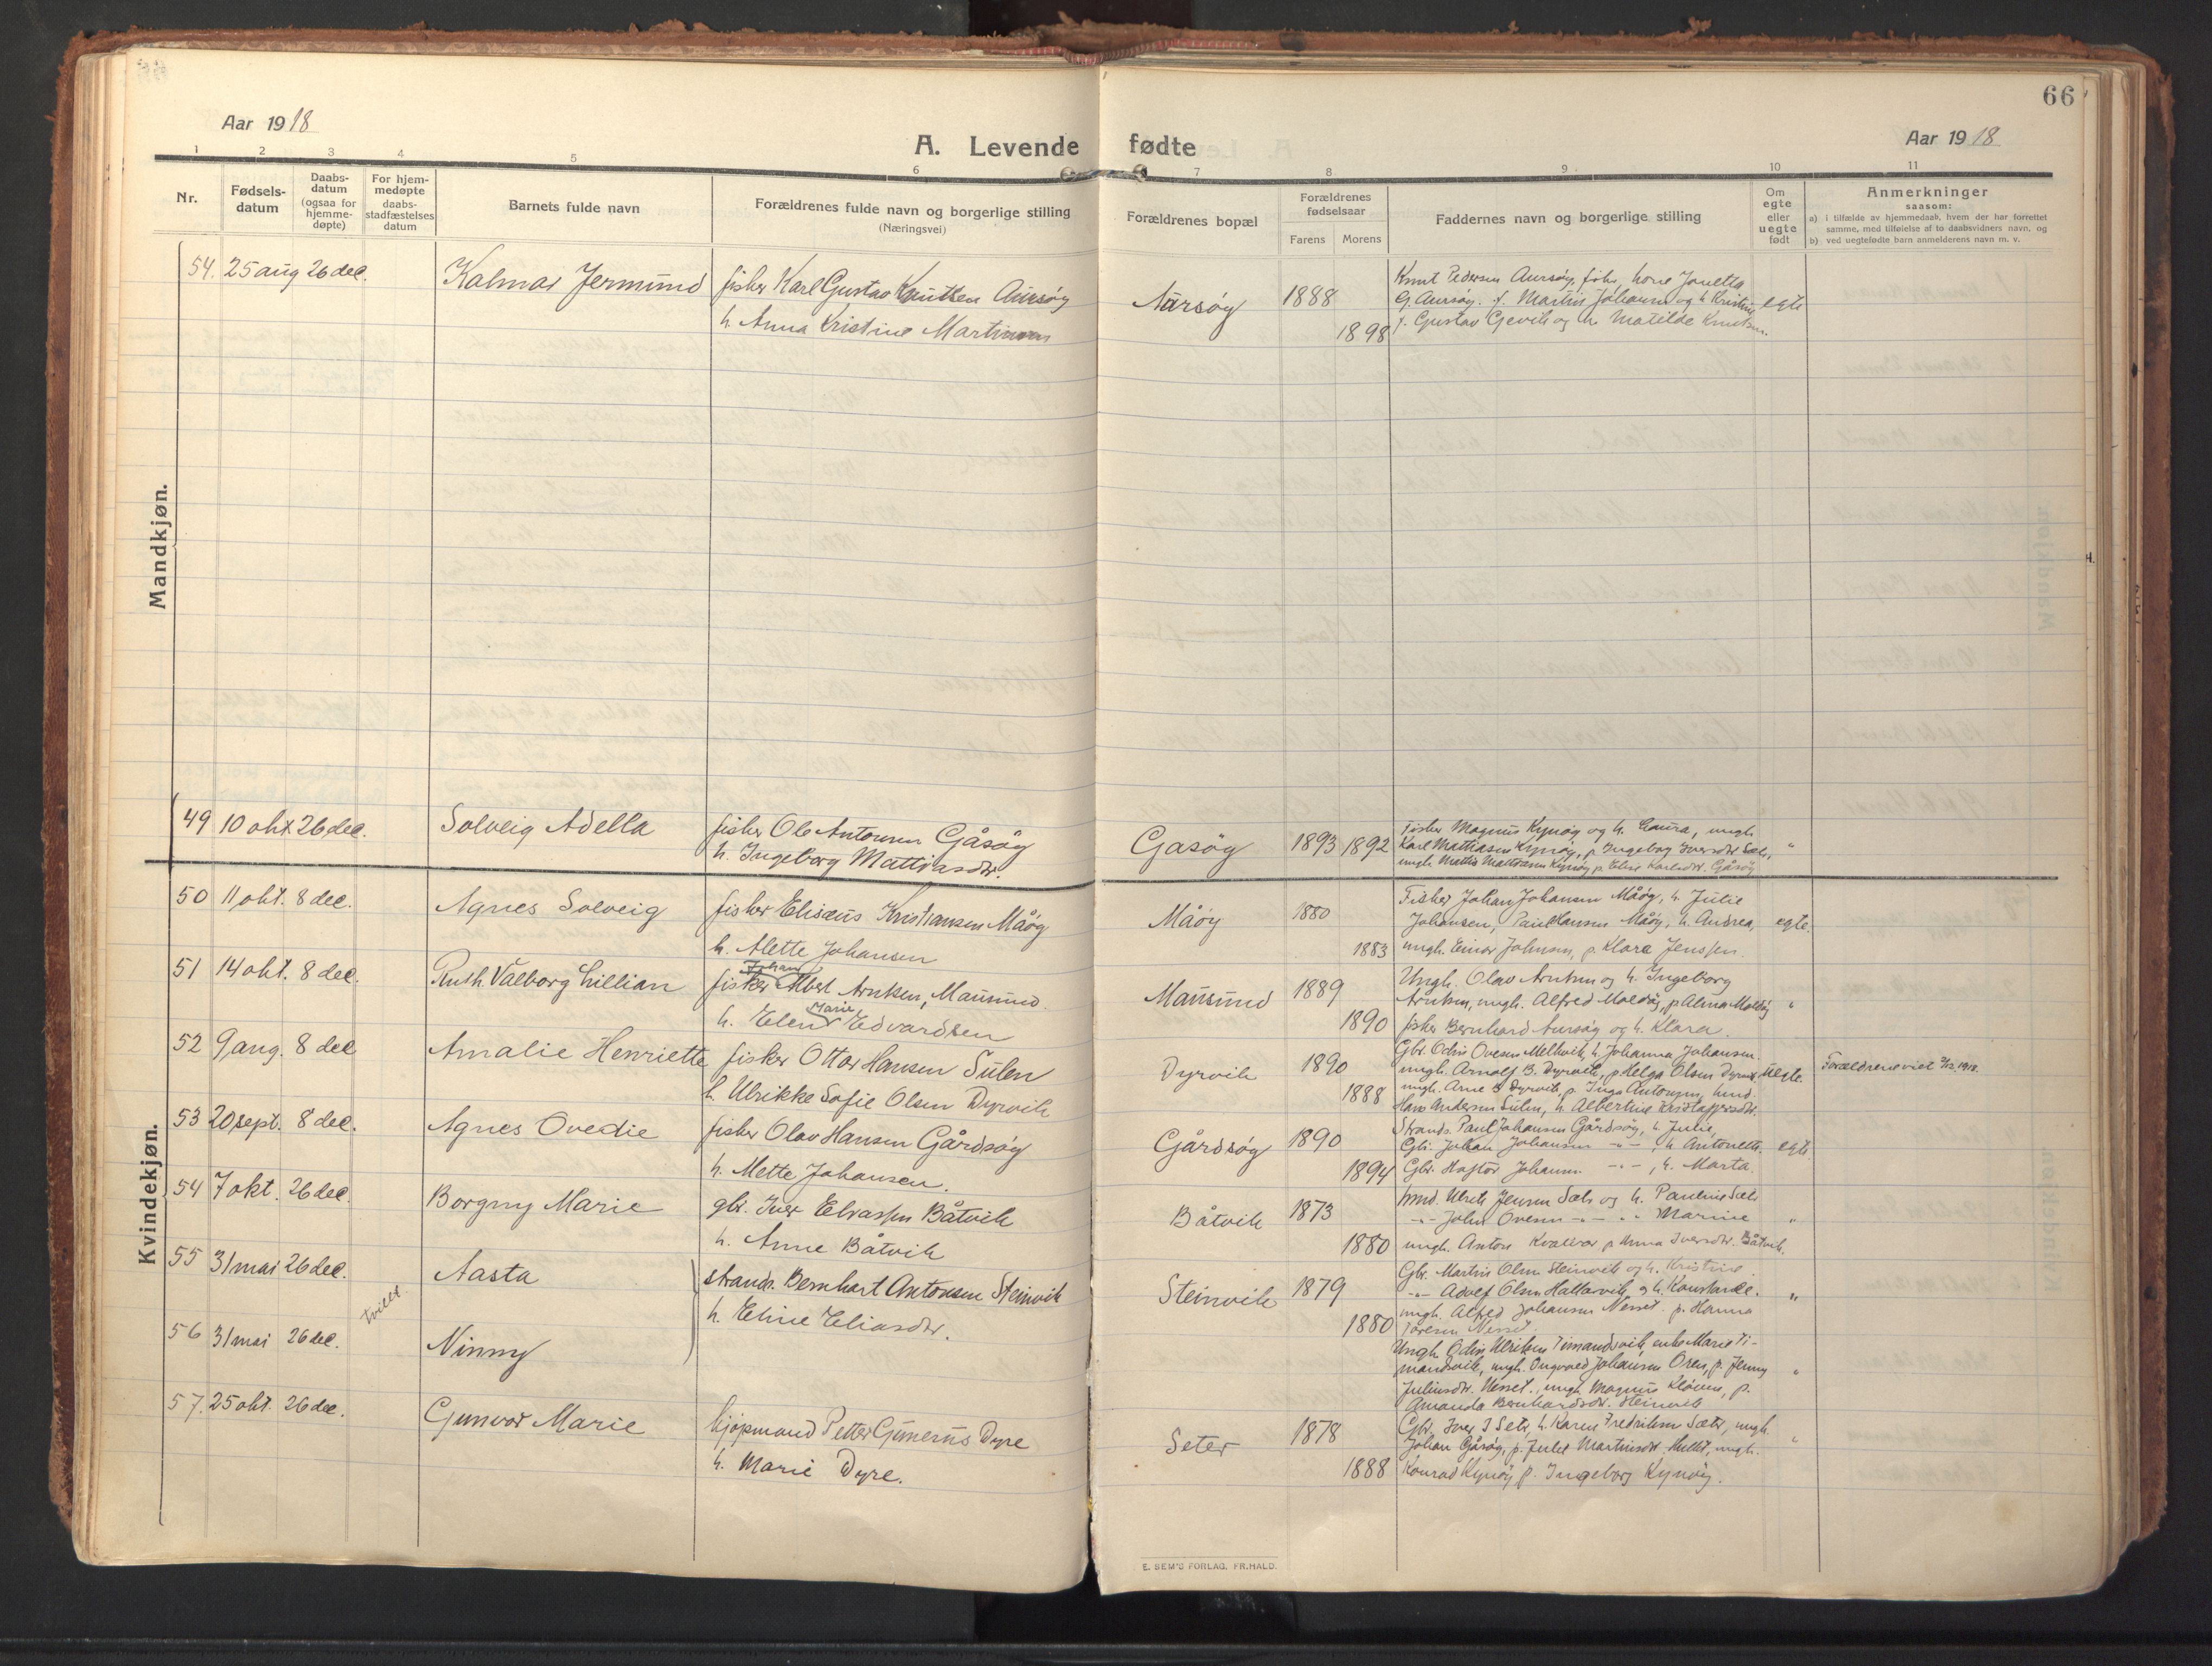 66
Aar 1918
A. Levende fødte
Aar 1918
1 2 3 4 5 6 7 8 9 10 11
Nr.
Fødsels-
datum
Daabs-
datum
(ogsaa for
hjemme-
døpte)
For hjem-
medøpte
daabs-
stadfæstelses
datum
Barnets fulde navn
Forældrenes fulde navn og borgerlige stilling
(Næringsvei)
Forældrenes bopæl
Forældrenes
fødselsaar
Farens Morens
Faddernes navn og borgerlige stilling
Om
egte
eller
uegte
født
Anmerkninger
saasom:
a) i tilfælde av hjemmedaab, hvem der har forrettet
samme, med tilføielse af to daabsvidners navn, og
b) ved uegtefødte barn anmelderens navn m. v.
Mandkjøn.
54. 25 aug 26 dec. Kalmar Jermund fisker Karl Gustav Knutsen Aursøy
h. Anna Kristine Martinsen
Aursøy 1888
1898
Knut Pedersen Aursøy, fisker, kone Janetta
G. Aursøy. f. Martin Johansen og h. Kristine egte
f. Gustav Gjevik og h. Matilde Knutsen.
49 10 okt 26 dec. Solveig Adella fisker Ole Antonsen Gåsøy
h. Ingeborg Mattiasdtr.
Gasøy 1893 1892
Fisker Magnus Kynøy og h. Laura, ungk.
Karl Mathiasen Kynøy, p. Ingeborg Iversdtr Sæt, "
ungk Mattis Mattiasen Kynøy p. Eline Karlsdtr. Gåsøy
Kvindekjøn.
50 11 okt. 8 dec. Agnes Solveig fisker Elisæus Kristiansen Måøy
h. Alette Johansen
Måøy 1880
1883
Fisker Johan Johansen Måøy, h. Julie
Johansen, Paul Hansen Måøy, h. Andrea, egte.
ungk. Einar Johnsen, p. Klara Jenssen.
51 14 okt. 8 dec. Ruth Valborg Lillian fisker Johan Albert Arntsen, Mausund.
h. Elen Marie Edvardsen
Mausund 1889
1890
Ungk. Olav Arntsen og h. Ingeborg
Arntsen, ungk. Alfred Moldøy, p. Alma Moldøy "
fisker Bernhard Aursøy og h. Klara.
52 9 aug. 8 dec Amalie Henriette fisker Ottar Hansen Sulen
h. Ulrikke Sofie Olsen Dyrvik
Dyrvik 1890
1888
Gbr. Odin Ovesen Melkvik, h. Johanna Johansen.
ungk. Arnolf B. Dyrvik, p Helga Olsen Dyrvik. uegte. Forældrene viet 1918.
ungk. Arne B. Dyrvik, p. Inga Antonsen, hmd.
Hans Andersen Sulen, h. Albertine Kristoffersdtr.
53 20 sept. 8 dec. Agnes Ovedie fisker Olav Hansen Gårdsøy
h. Mette Johansen.
Gårdsøy 1890
1894
Strands. Paul Johansen Gårdsøy, h. Julie,
Gbr. Johan Johansen -"-, h. Antonette. egte.
Gbr. Haftor Johansen -"-, h. Marta.
54 7 okt. 26 dec. Borgny Marie gbr. Iver Eliassen Båtvik
h. Anne Båtvik
Båtvik 1873
1880
hmd. Ulrik Jensen Sæt og h. Pauline Sæt
-"- John Ovesen -"- -"- Marine "
ungk. Anton Kvalvær p Anna Iversdtr. Båtvik.
55 31 mai 26 dec. Aasta
tvill.
strands. Bernhart Antonsen Steinvik
h. Eline Eliasdtr.
Steinvik 1879
1880
Gbr. Martin Olsen Steinvik og h. Kristine.
-"- Adolf Olsen Hattarvik og h. Konstanse. "
ungk. Alfred Johansen Nesset. p. Hanna
Toresen Nesset.
56 31 mai 26 dec. Ninny
Ungk. Odin Ulriksen Timandsvik, enke Marie Ti-
mandsvik, ungk. Ingvald Johansen Oren, p. Jenny "
Juliusdtr. Nesset., ungk. Magnus Kløven, p.
Amanda Bernhardsdtr. Steinvik
57. 25 okt. 26 dec. Gunvor Marie kjøpmand Petter Gunerius Dyre
h. Marie Dyre.
Seter 1878
1888
Gbr. Iver J Seter, h. Karen Fredriksen Sæter, ungk.
Johan Gåsøy, p. Julie Martinsdtr. Hellet, ungk. "
Konrad Kynøy p. Ingeborg Kynøy.
E. SEM'S FORLAG, FR.HALD.